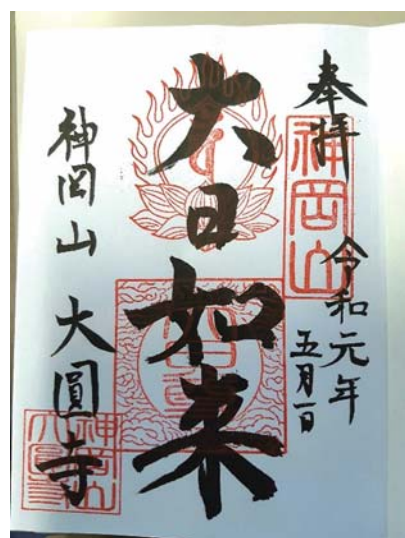 奉拝
神岡山
令和元年
五月一日
大日如来
神岡山 大圓寺